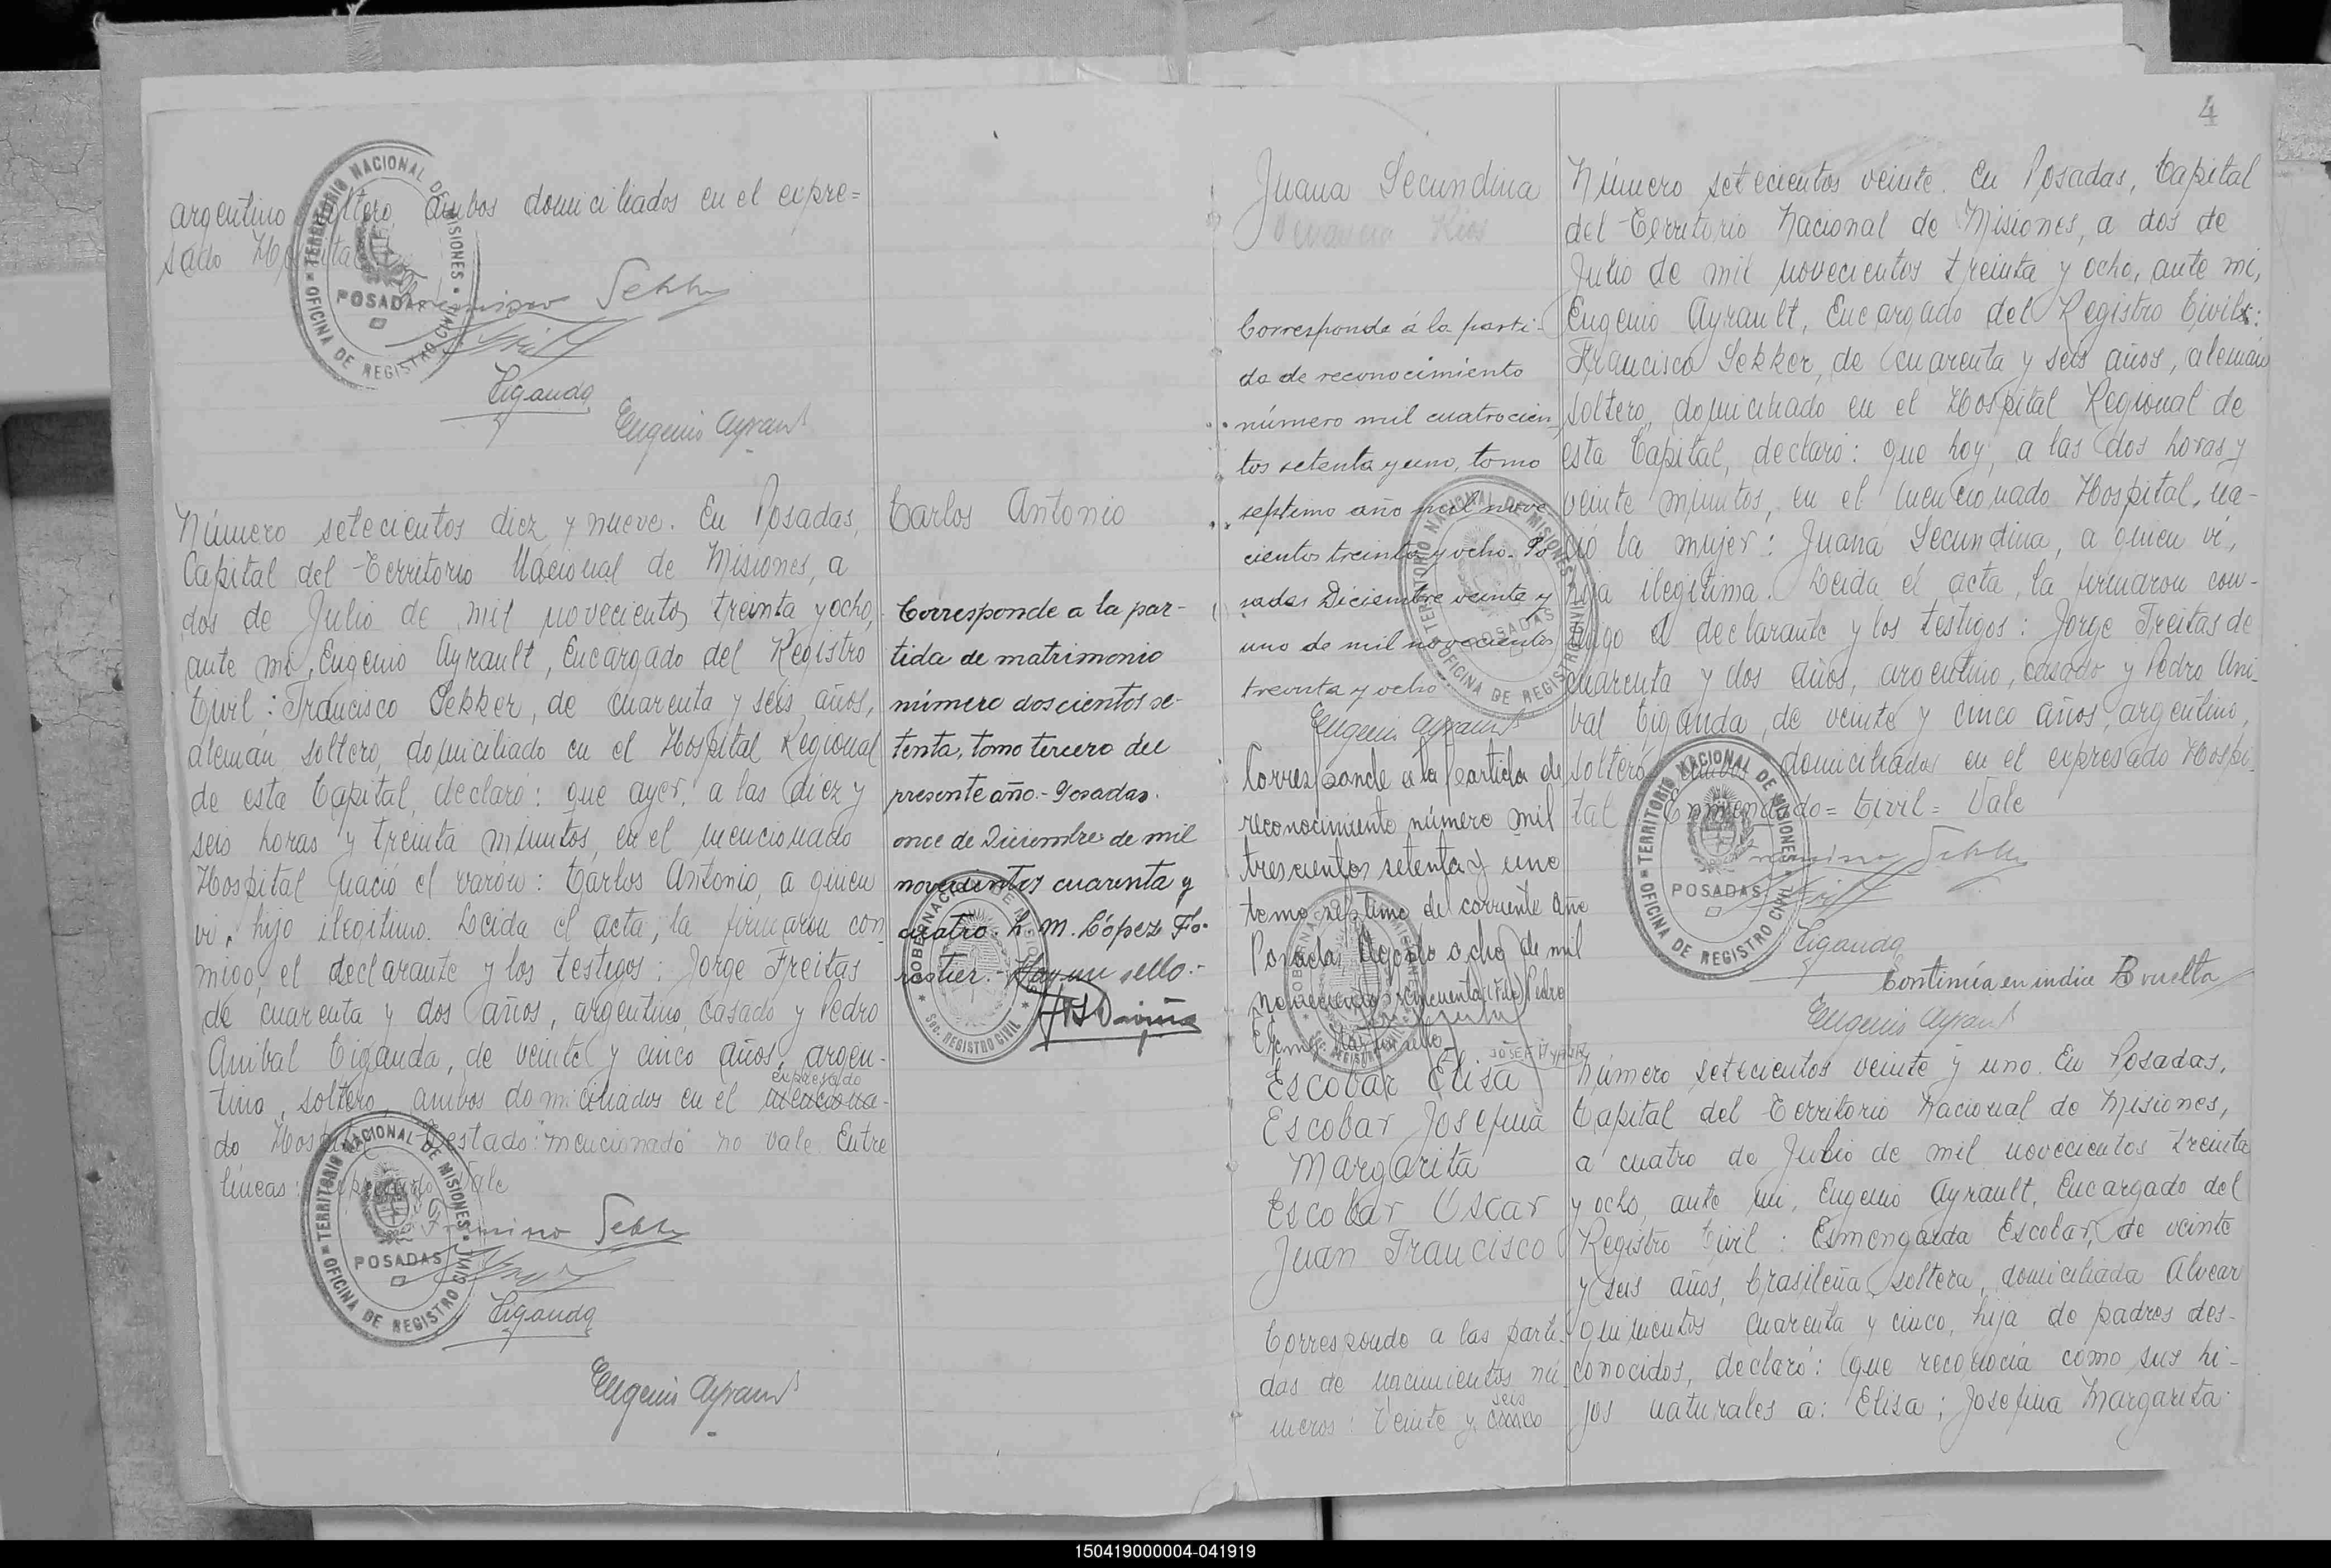 argentino soltero, ambos domiciliados en el expre=
sado Hospital
TERRITORIO NACIONAL DE MISIONES
POSADAS
OFICINA DE REGISTRO CIVIL
Francisco Sekker
Ciganda
Eugenio Ayrault
Número setecientos diez y nueve. En Posadas,
Capital del Territorio Nacional de Misiones, a
dos de Julio de mil novecientos treinta y ocho,
ante mí, Eugenio Ayrault, Encargado del Registro
Civil: Francisco Sekker, de cuarenta y seis años,
alemán soltero, domiciliado en el Hospital Regional
de esta Capital, declaró: que ayer, a las diez y
seis horas y treinta minutos, en el mencionado
Hospital nació el varón: Carlos Antonio, a quien
ví, hijo ilegítimo. Leida el acta, la firmaron con
migo, el declarante y los testigos: Jorge Freitas
de cuarenta y dos años, argentino, casado y Pedro
Anibal Ciganda, de veinte y cinco años, argen-
expresado
tino, soltero, ambos domiciliados en el menciona-
do Hospital Testado: "mencionado" no vale Entre
líneas: expresado Vale
TERRITORIO NACIONAL DE MISIONES
POSADAS
OFICINA DE REGISTRO CIVIL
Francisco Sekker
Ciganda
Eugenio Ayrault
Carlos Antonio
Corresponde a la par-
tida de matrimonio
número doscientos se-
tenta, tomo tercero del
presente año.- Posadas.
once de Diciembre de mil
novecientos cuarenta y
cuatro. h. M. López Fo-
restier.- Hay un sello.-
GOBERNACION DE MISIONES
Sec. REGISTRO CIVIL
4
Juana Secundina
Rios
Corresponde á la parti-
da de reconocimiento
número mil cuatrocien
tos setenta y uno, tomo
septimo año mil nove
cientos treinta y ocho. Po
sadas Diciembre veinte y
uno de mil novecientos
treinta y ocho.
Eugenio Ayrault
TERRITORIO NACIONAL DE MISIONES
POSADAS
OFICINA DE REGISTRO CIVIL
Corresponde a la partida de
reconocimiento número mil
trescientos setenta y uno
tomo séptimo del corriente año
Posadas, Agosto ocho de mil
novecientos cincuenta
Escobar Elisa
Escobar Josefina
Margarita
Escobar Oscar
Juan Francisco
Corresponde a las parti-
das de nacimientos nú-
seis
meros: Veinte y cinco
Número setecientos veinte. En Posadas, Capital
del Territorio Nacional de Misiones, a dos de
Julio de mil novecientos treinta y ocho, ante mí,
Eugenio Ayrault, Encargado del Registro Civil:
Francisco Sekker, de cuarenta y seis años, alemán
soltero, domiciliado en el Hospital Regional de
esta Capital, declaró: que hoy, a las dos horas y
veinte minutos, en el mencionado Hospital, na-
ció la mujer: Juana Secundina, a quien ví,
hija ilegítima. Leida el acta, la firmaron con-
migo el declarante y los testigos: Jorge Freitas de
cuarenta y dos años, argentino, casado y Pedro Aní-
bal Ciganda, de veinte y cinco años, argentino,
soltero, ambos domiciliados en el expresado Hospi-
tal Enmendado = Civil = Vale
TERRITORIO NACIONAL DE MISIONES
POSADAS
OFICINA DE REGISTRO CIVIL
Francisco Sekker
Ciganda
Continúa en indice B vuelta
Eugenio Ayrault
Número setecientos veinte y uno. En Posadas,
Capital del Territorio Nacional de Misiones,
a cuatro de Julio de mil novecientos treinta
y ocho, ante mí, Eugenio Ayrault, Encargado del
Registro Civil: Esmengarda Escobar, de veinte
y seis años, brasileña, soltera, domiciliada Alvear
quinientos cuarenta y cinco, hija de padres des-
conocidos, declaró: que reconocía como sus hi-
jos naturales a: Elisa; Josefina Margarita
150419000004-041919